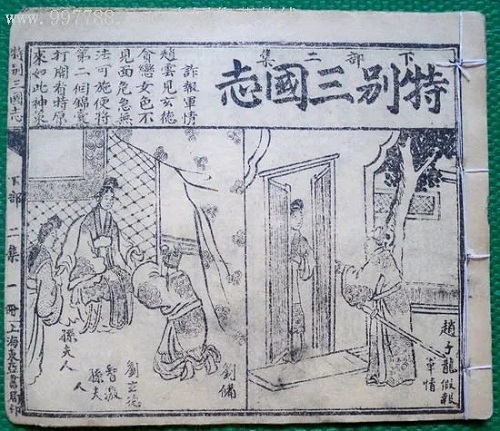 997788
下部二集
特別三國志
詐報軍情
趙雲見玄德
貪戀女色不
見面危急無
法可施便將
第二個錦囊
打開看時原
來如此神策
趙子龍假報
軍情
劉備
劉玄德
智激
孫夫
人
孫夫人
特別三國志 下部 二集 一冊 上海東亞書局印